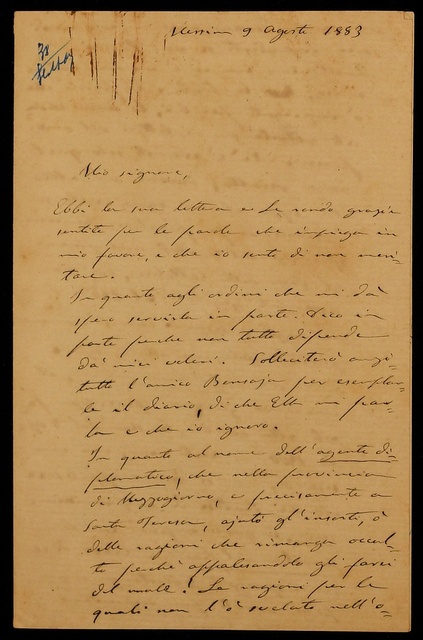 Messina 9 Agosto 1883
Mio signore,
Ebbi la sua lettera e Le rendo grazie
sentite per le parole che impiega in
mio favore, e che io sento di non meri-
tare.
In quanto agli ordini che mi dà
spero servirla in parte. Dico in
parte perchè non tutto dipende
da' miei voleri. Solleciterò anzi-
tutto l'amico Bensaja per esemplar-
le il diario, di che Ella mi par-
la e che io ignoro.
In quanto al nome dell'agente di-
plomatico, che nella provincia
di Mezzogiorno, e precisamente a
Santa Teresa, ajutò gl'insorti, ò
delle ragioni che rimanga occul-
to perchè appalesandolo gli farei
del male. Le ragioni per le
quali non l'ò svelato nell'o-